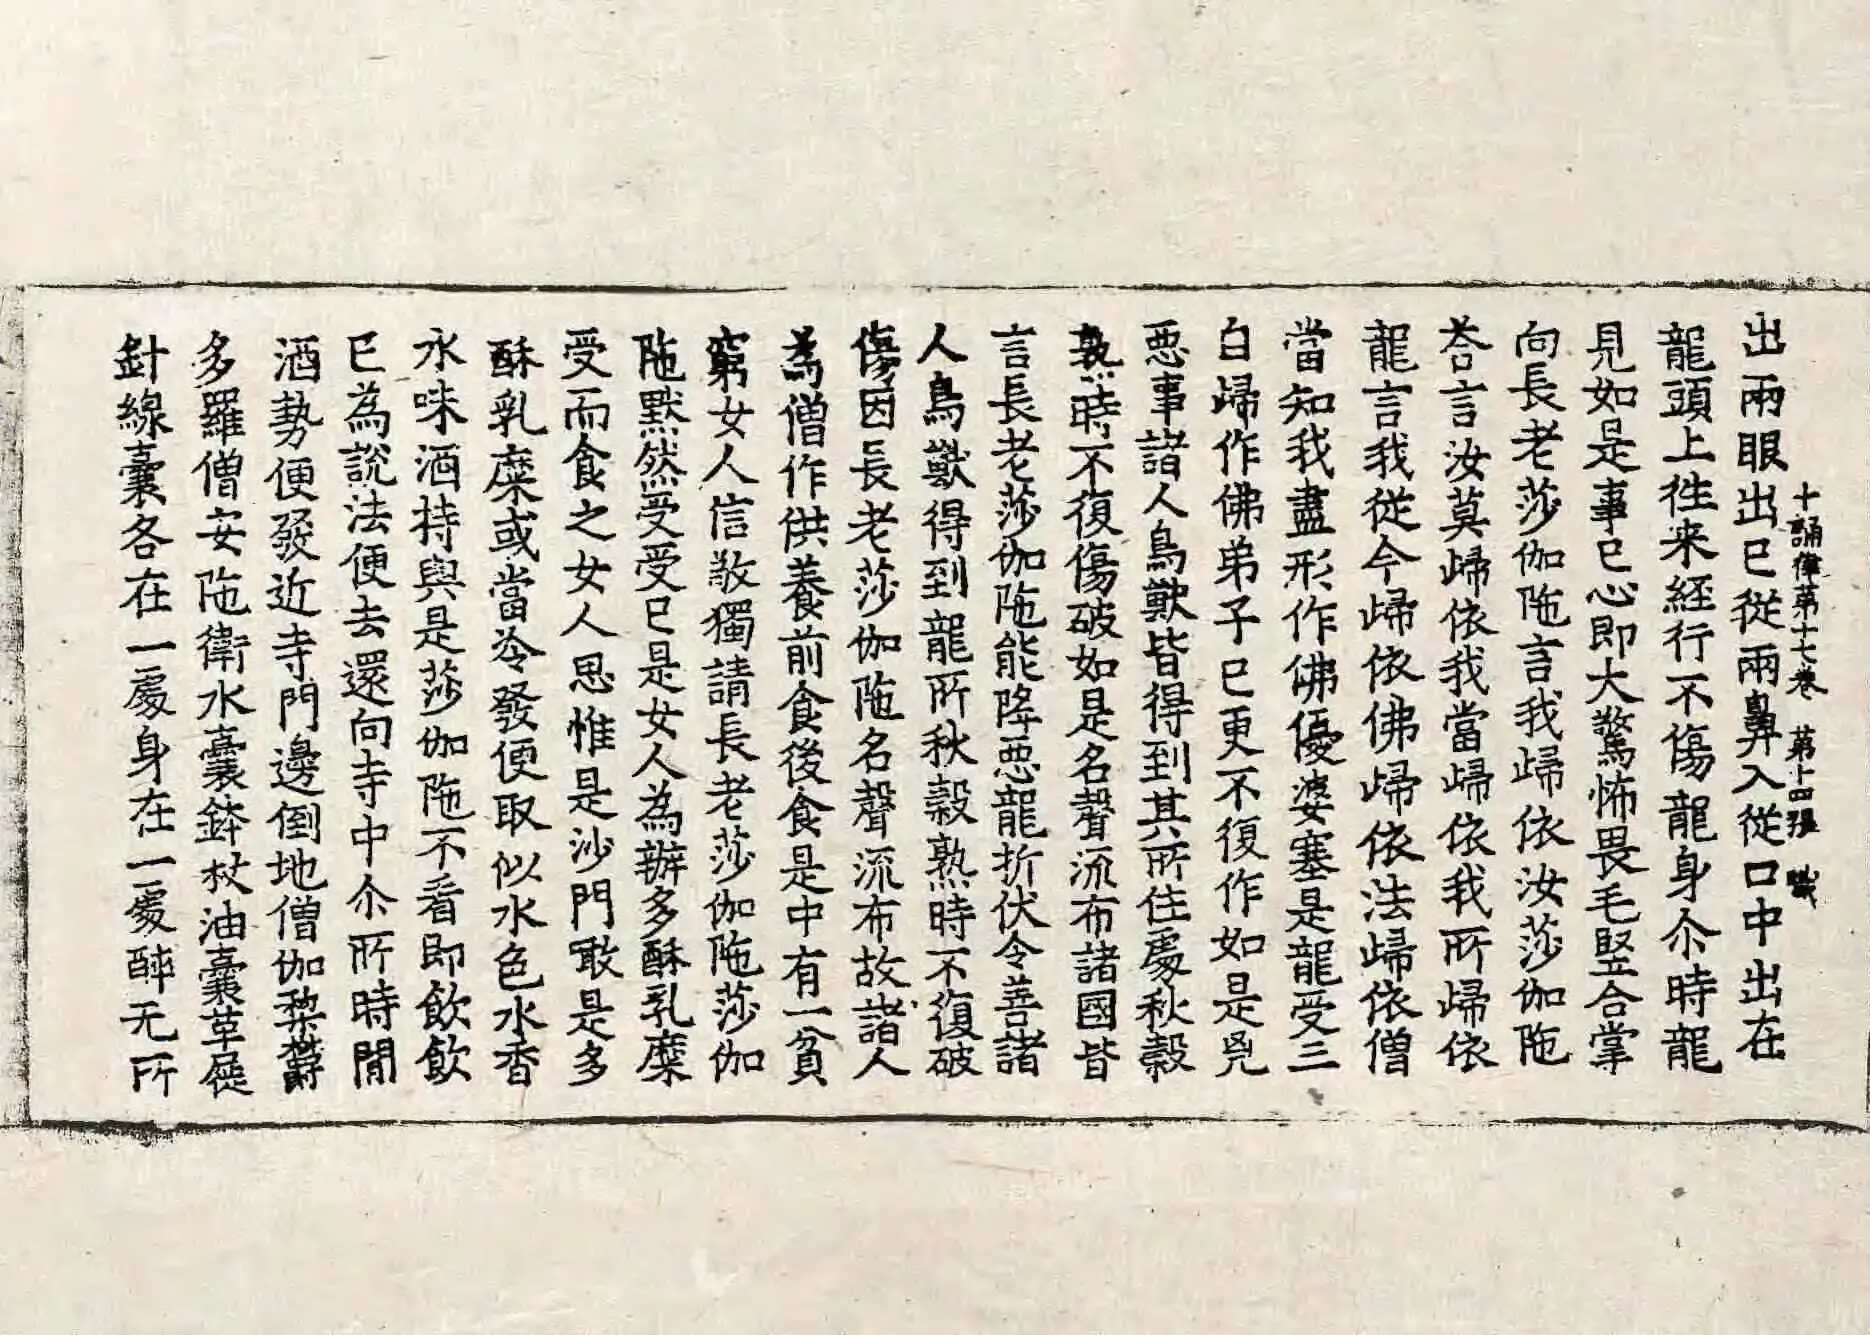 十誦律第十七卷　第十四張　職
出兩眼出已從兩鼻入從口中出在
龍頭上往来經行不傷龍身尒時龍
見如是事已心即大驚怖畏毛竪合掌
向長老莎伽陁言我歸依汝莎伽陁
荅言汝莫歸依我當歸依我所歸依
龍言我從今歸依佛歸依法歸依僧
當知我盡形作佛優婆塞是龍受三
自歸作佛弟子已更不復作如是兇
惡事諸人鳥獸皆得到其所住處秋穀
熟時不復傷破如是名聲流布諸國皆
言長老莎伽陁能降惡龍折伏令善諸
人鳥獸得到龍所秋穀熟時不復破
傷因長老莎伽陁名聲流布故諸人
為僧作供養前食後食是中有一貧
窮女人信敬獨請長老莎伽陁莎伽
陁默然受受已是女人為辦多酥乳糜
受而食之女人思惟是沙門噉是多
酥乳糜或當冷發便取似水色水香
水味酒持與是莎伽陁不看即飲飲
已為說法便去還向寺中尒所時閒
酒勢便發近寺門邊倒地僧伽棃欝
多羅僧安陁衛水囊鉢杖油囊草屣
針綖囊各在一處身在一處醉无所